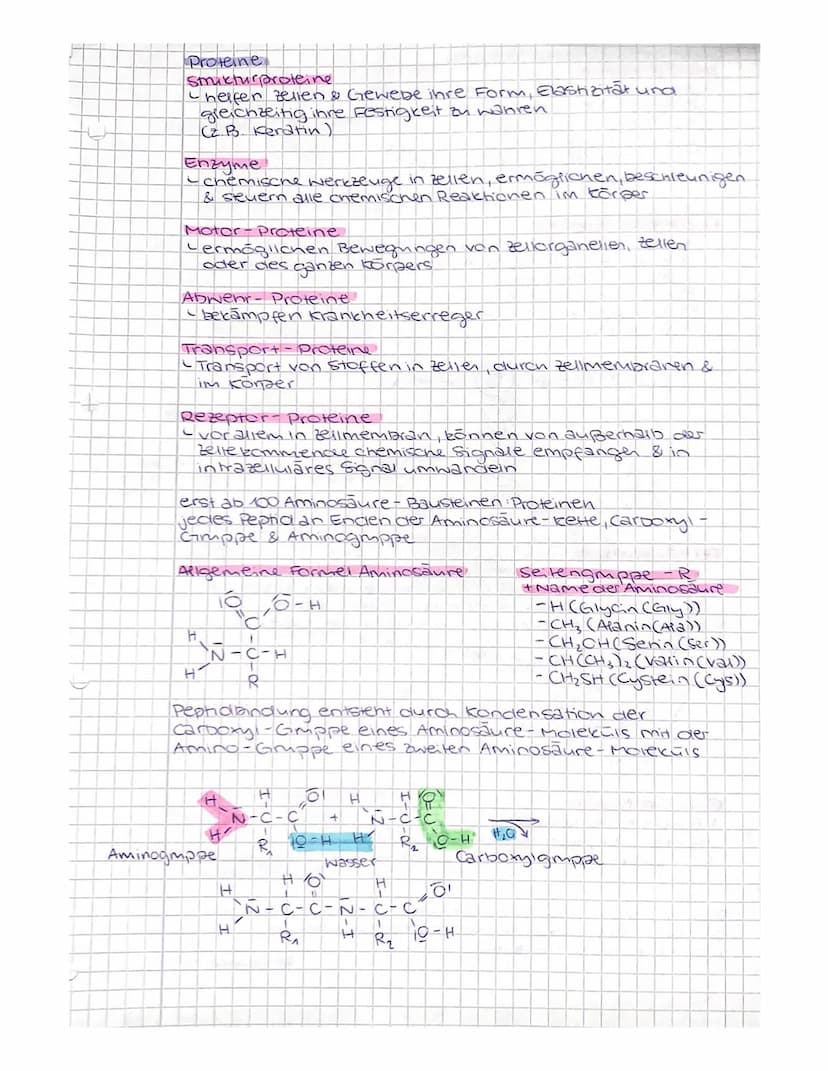 Proteine
Strukturproteine
↳ helfen Zellen & Gewebe ihre Form, Elastizität und
gleichzeitig ihre Festigkeit zu wahren
(z.B. Keratin)
Enzyme
↳ chemische Werkzeuge in Zellen, ermöglichen, beschleunigen
& seuern alle chemischen Reaktionen im Körper
Motor-Proteine
↳ ermöglichen Bewegungen von Zellorganellen, Zellen
oder des ganzen Körpers
Abwehr-Proteine
↳ bekämpfen Krankheitserreger
Transport-Proteine
↳ Transport von Stoffen in Zellen, durch Zellmembranen &
im Körper
Rezeptor-Proteine
↳ vor allem in Zellmembran, können von außerhalb der
Zelle kommende chemische Signale empfangen & in
intrazelluläres Signal umwandeln
erst ab 100 Aminosäure-Bausteinen: Proteinen
jedes Peptid an Enden der Aminosäure-Kette, Carboxyl-
Gruppe & Aminogruppe
Allgemeine Formel Aminosäure
O O-H
C
H
N-C-H
H
R
Seitengruppe -R
+ Name der Aminosäure
-H (Glycin (Gly))
-CH₃ (Alanin (Ala))
-CH₂OH (Serin (Ser))
-CH(CH₃)₂ (Valin (Val))
-CH₂SH (Cystein (Cys))
Peptidbindung entsteht durch Kondensation der
Carboxyl-Gruppe eines Aminosäure-Moleküls mit der
Amino-Gruppe eines zweiten Aminosäure-Moleküls
H H O H H O
N-C-C + N-C-C
H R₁ O-H H R₂ O-H H₂O
Aminogruppe Wasser Carboxylgruppe
H H O H O
N-C-C-N-C-C
H R₁ H R₂ O-H